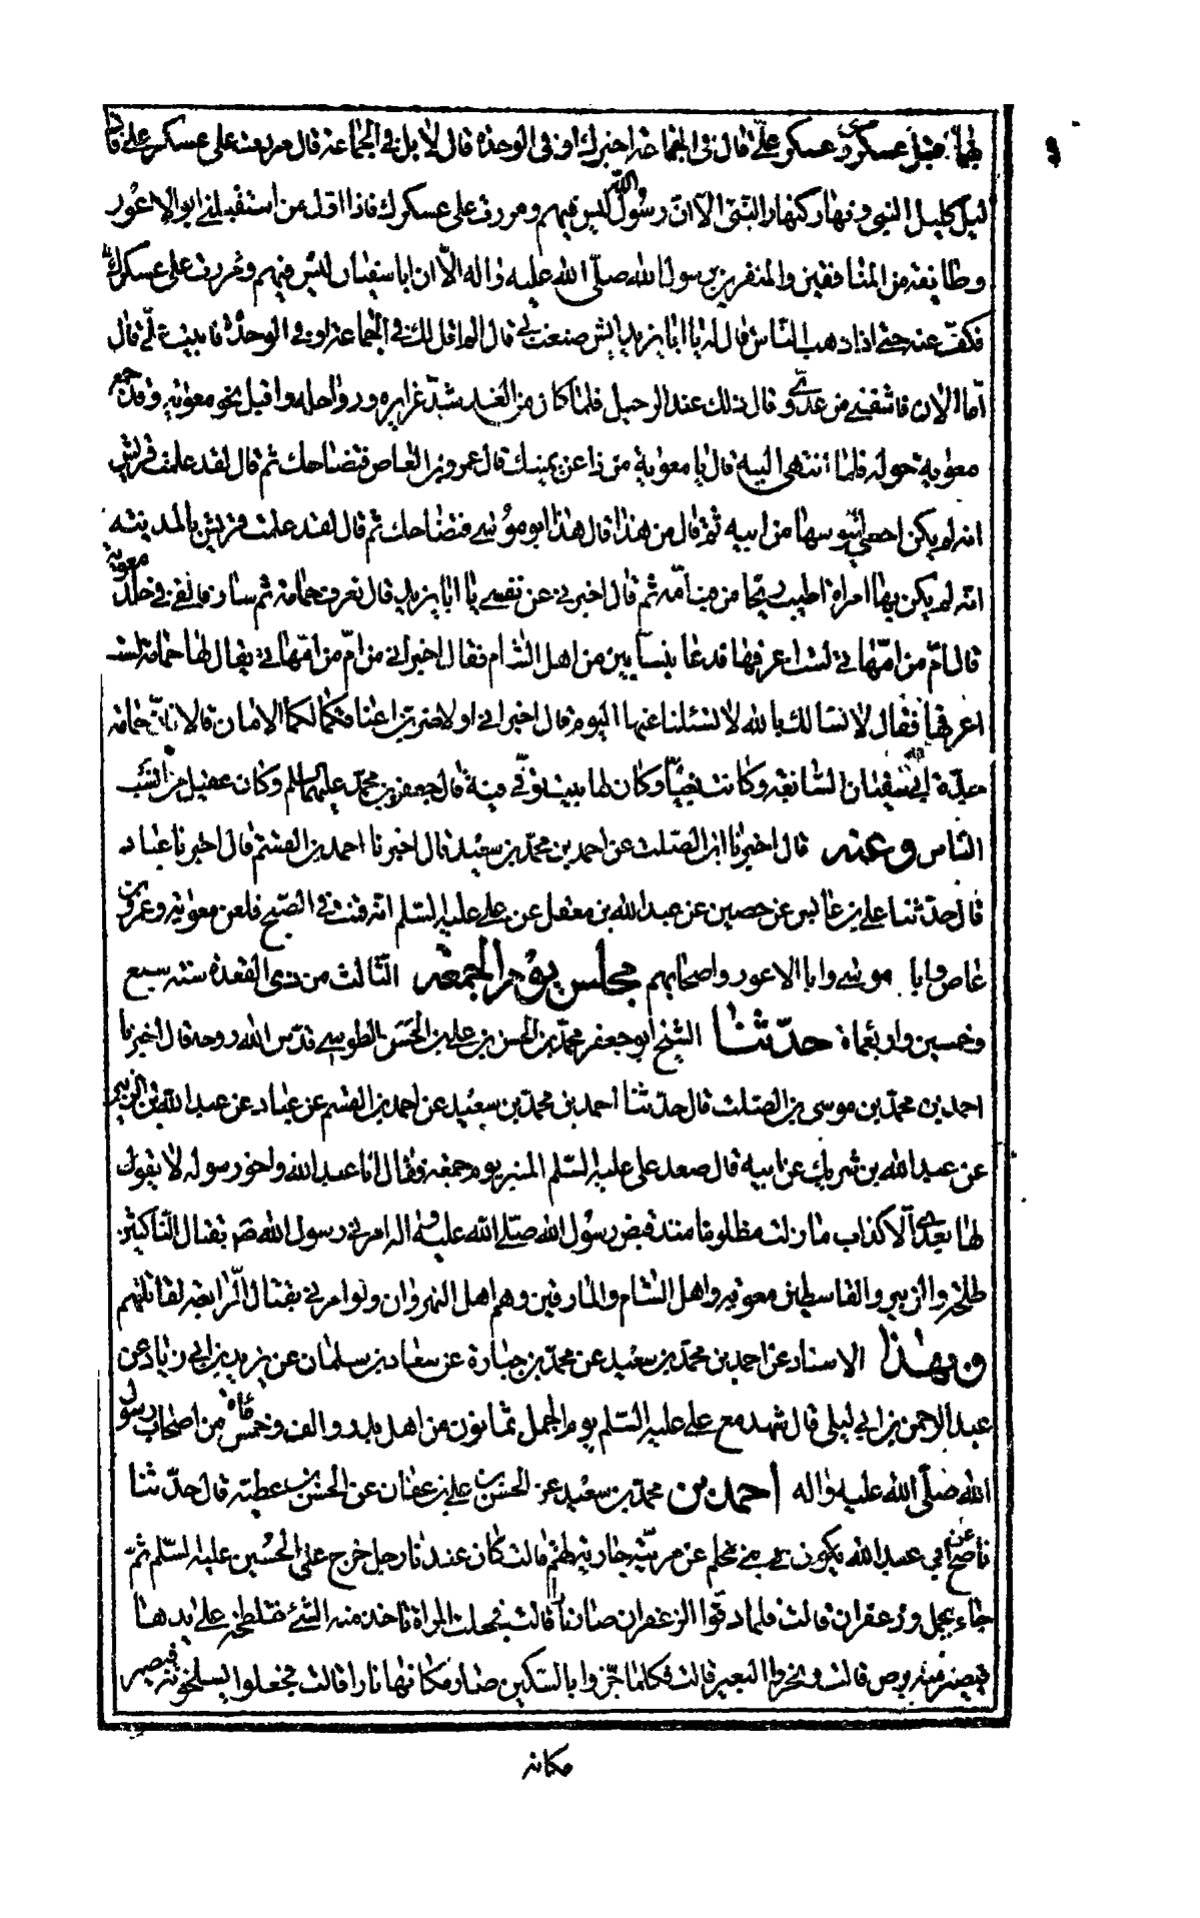 عسكري وعسكر علي قال في الجماعة اخبرك او في الوحدة قال لا بل في الجماعة قال مررت على عسكر علي فاذا
ليل كليل النبي ونهار كنهار النبي الا ان رسول الله ليس فيهم ومررت على عسكرك فاذا اول من استقبلني ابو الاعور
وطائفة من المنافقين والمنفرين برسول الله صلى الله عليه واله الا ان ابا سفيان ليس فيهم ومررت على عسكرك
فكف عنه حتى اذا ذهب الناس قال له يا ابا يزيد ايش صنعت بي قال الم اقل لك في الجماعة او في الوحدة فابيت علي قال
اما الان فاشفني من عدوي وقال ذلك عند الرحيل فلما كان من الغد شد غرايره ورواحله واقبل نحو معوية وقد جمع
معوية حوله فلما انتهى اليه قال يا معوية من ذا عن يمينك قال عمرو بن العاص فتضاحك ثم قال لقد علمت قريش
انه لم يكن احصى لتيوسها من ابيه ثم قال من هذا قال هذا ابو موسى فتضاحك ثم قال لقد علمت قريش بالمدينة
انه لم يكن بها امراة اطيب ريحا من قب امه ثم قال اخبرني عن نفسي يا ابا يزيد قال تعرف حمامة ثم سار فالقي في خلد معوية
قال ام من امهاتي لست اعرفها فدعا بنسابين من اهل الشام فقال اخبراني من ام من امهاتي يقال لها حمامة لست
اعرفها فقال لا نسالك بالله لا تسئلنا عنها اليوم قال اخبراني او لاضربن اعناقكما لكما الامان قالا فان حمامة
جدة ابي سفيان السابعة وكانت بغيا وكان لها بيت توفي فيه قال جعفر بن محمد عليهما السلم وكان عقيل من انسب
الناس وعنه قال اخبرنا ابن الصلت عن احمد بن محمد بن سعيد قال اخبرنا احمد بن القسم قال اخبرنا عباد
قال حدثنا علي بن عابس عن حصين عن عبد الله بن معقل عن علي عليه السلم انه قنت في الصبح فلعن معوية وعمرو بن
عاص وابا موسى وابا الاعور واصحابهم مجلس يوم الجمعة الثالث من ذي القعدة سنة سبع
وخمسين واربعماة حدثنا الشيخ ابو جعفر محمد بن الحسن بن علي بن الحسن الطوسي قدس الله روحه قال اخبرنا
احمد بن محمد بن موسى بن الصلت قال حدثنا احمد بن محمد بن سعيد عن احمد بن القسم عن عباد عن عبد الله بن الزبير
عن عبد الله بن شريك عن ابيه قال صعد علي عليه السلم المنبر يوم جمعة فقال انا عبد الله واخو رسوله لا يقول
لها بعدي الا كذاب ما زلت مظلوما منذ قبض رسول الله صلى الله عليه واله امرني رسول الله صم بقتال الناكثين
طلحة والزبير والقاسطين معوية واهل الشام والمارقين وهم اهل النهروان ولو امرني بقتال الرابعة لقاتلتهم
وبهذا الاسناد عن احمد بن محمد بن سعيد عن محمد بن جبارة عن سعاد بن سلمان عن يزيد بن ابي زياد عن
عبد الرحمن بن ابي ليلى قال شهد مع علي عليه السلم يوم الجمل ثمانون من اهل بدر والف وخمس مائة من اصحاب رسول
الله صلى الله عليه واله احمد بن محمد بن سعيد عن الحسن بن علي بن عفان عن الحسن بن عطية قال حدثنا
ناصح ابي عبد الله عن جارية لهم قالت كان عندنا رجل خرج على الحسين عليه السلم ثم
جاء بجمل وزعفران قالت فلما دقوا الزعفران صار نارا قالت فجعلت المراة تاخذ منه الشئ فتلطخه على يدها
فيصير منه برص قالت ونحروا البعير قالت فكلما جزوا بالسكين صار مكانها نارا قالت فجعلوا يسلخونه فيصير
مكانه